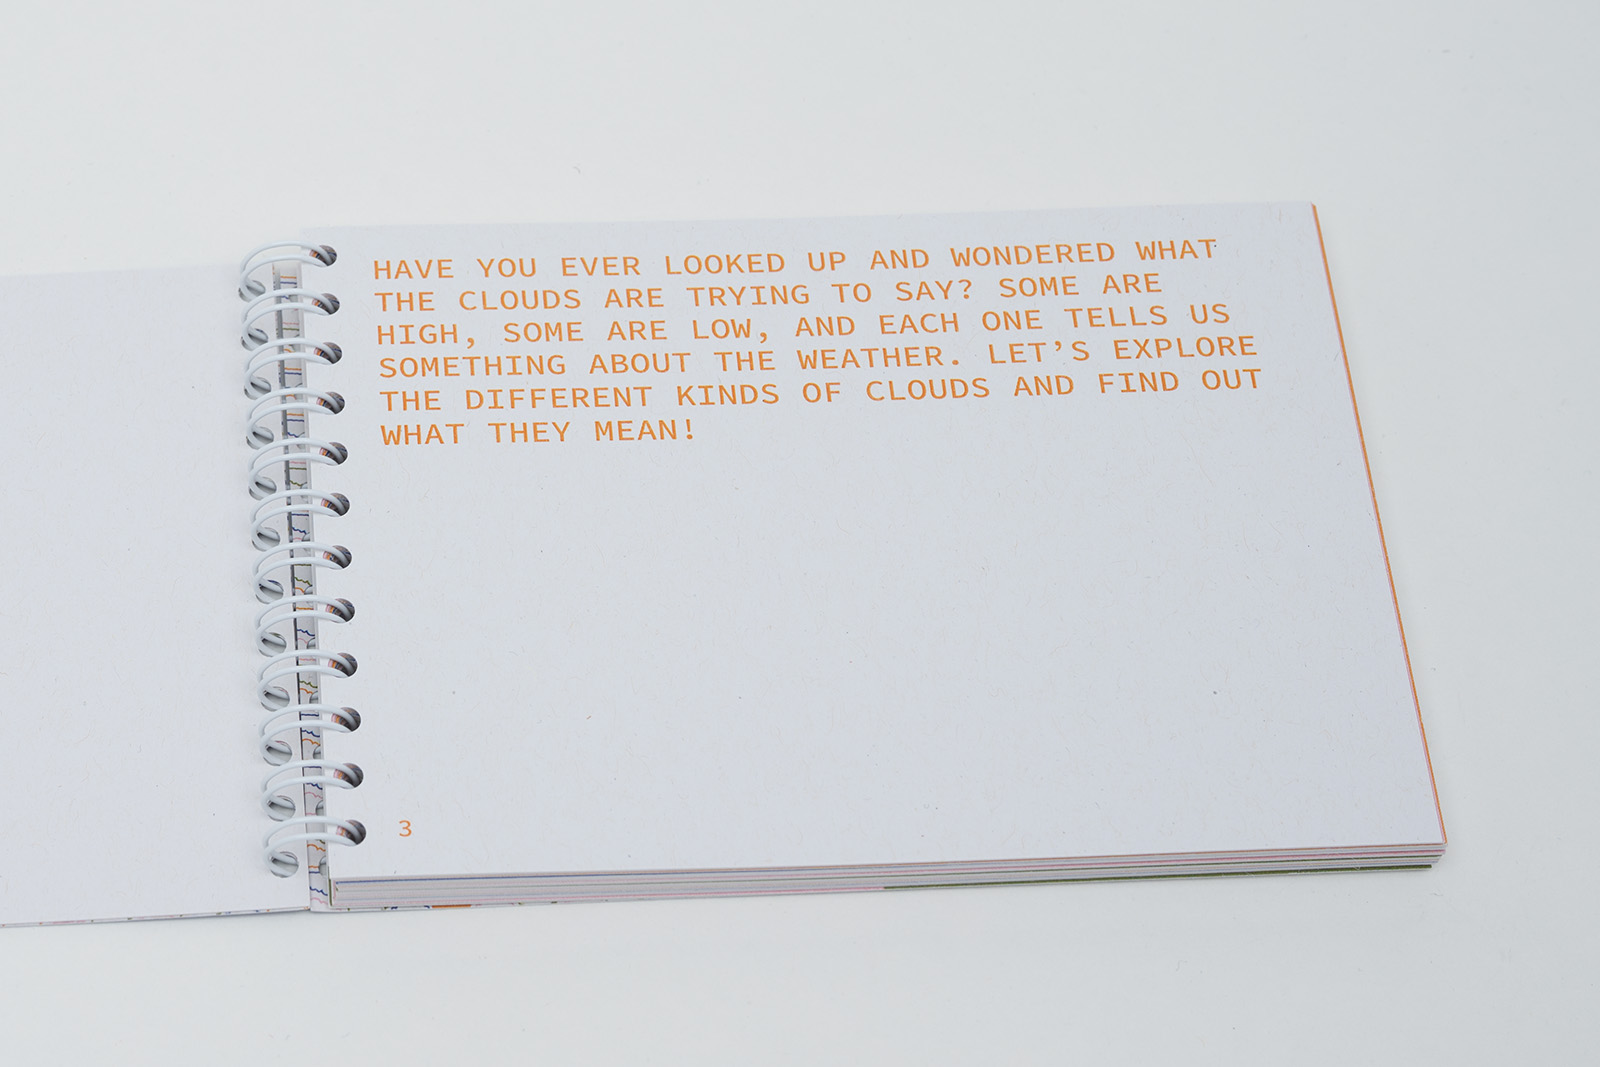 HAVE YOU EVER LOOKED UP AND WONDERED WHAT
THE CLOUDS ARE TRYING TO SAY? SOME ARE
HIGH, SOME ARE LOW, AND EACH ONE TELLS US
SOMETHING ABOUT THE WEATHER. LET’S EXPLORE
THE DIFFERENT KINDS OF CLOUDS AND FIND OUT
WHAT THEY MEAN!
3